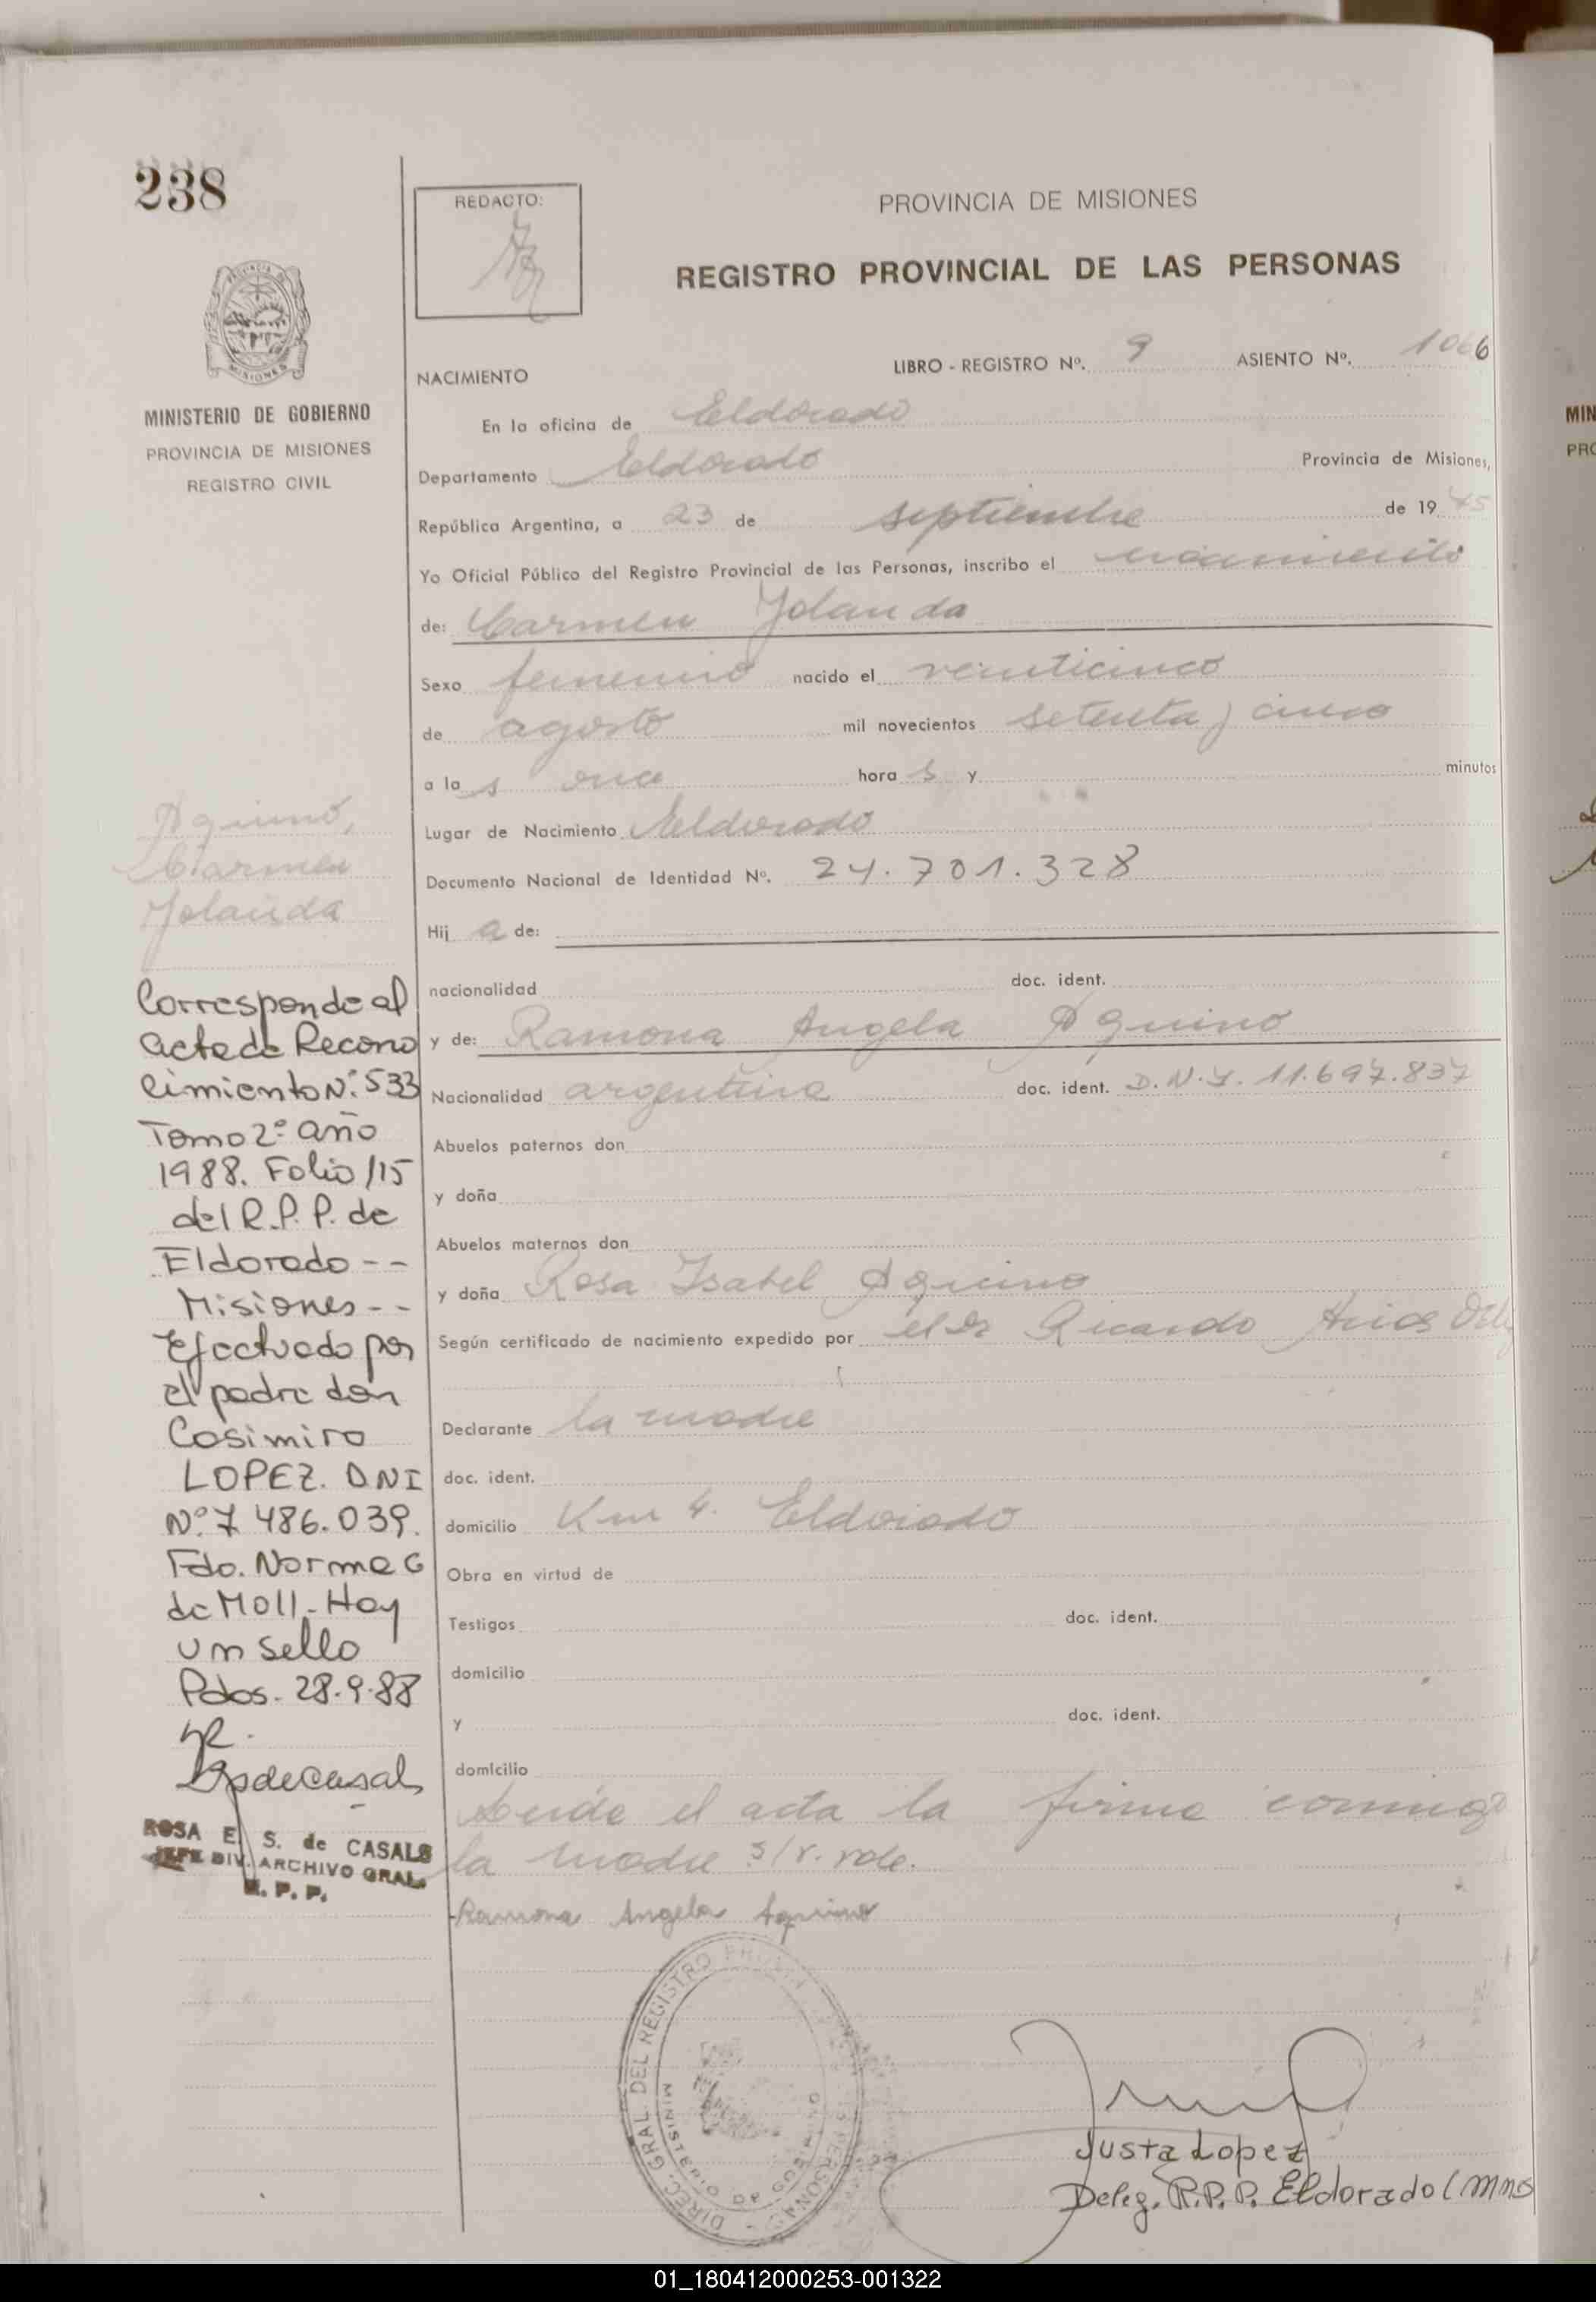 238
REDACTO:
PROVINCIA DE MISIONES
REGISTRO PROVINCIAL DE LAS PERSONAS
MINISTERIO DE GOBIERNO
PROVINCIA DE MISIONES
REGISTRO CIVIL
LIBRO - REGISTRO Nº. 9 ASIENTO Nº. 1066
NACIMIENTO
En la oficina de Eldorado
Departamento Eldorado Provincia de Misiones,
República Argentina, a 23 de septiembre de 19 75
Yo Oficial Público del Registro Provincial de las Personas, inscribo el nacimiento
de: Carmen Yolanda
Sexo femenino nacido el veinticinco
de agosto mil novecientos setenta y cinco
a la s once hora s y minutos
Lugar de Nacimiento Eldorado
Documento Nacional de Identidad Nº. 24.701.328
Hij a de:
nacionalidad doc. ident.
y de: Ramona Angela Aquino
Nacionalidad argentina doc. ident. D.N.I. 11.697.837
Abuelos paternos don
y doña
Abuelos maternos don
y doña Rosa Isabel Aquino
Según certificado de nacimiento expedido por el Dr Ricardo Arias
Declarante la madre
doc. ident.
domicilio Km 4. Eldorado
Obra en virtud de
Testigos doc. ident.
domicilio
y doc. ident.
domicilio
el acta la firma conmigo
la madre s/r. vale.
Ramona Angela Aquino
Aquino,
Carmen
Yolanda
Corresponde al
acta de Recono
cimiento Nº. 533
Tomo 2º año
1988. Folio 115
del R.P.P. de
Eldorado --
Misiones --
Efectuado por
el padre don
Casimiro
LOPEZ. DNI
Nº. 7 486.039.
Fdo. Norma G
de Moll - Hay
un sello
Pdas. 28.9.88
ROSA E. S. de CASALS
JEFE DIV. ARCHIVO GRAL.
R. P. P.
DIREC. GRAL. DEL REGISTRO PERSONAS
MINISTERIO DE GOBIERNO
Justa Lopez
Deleg. R.P.P. Eldorado (Mnes
MIN
PRO
01_180412000253-001322